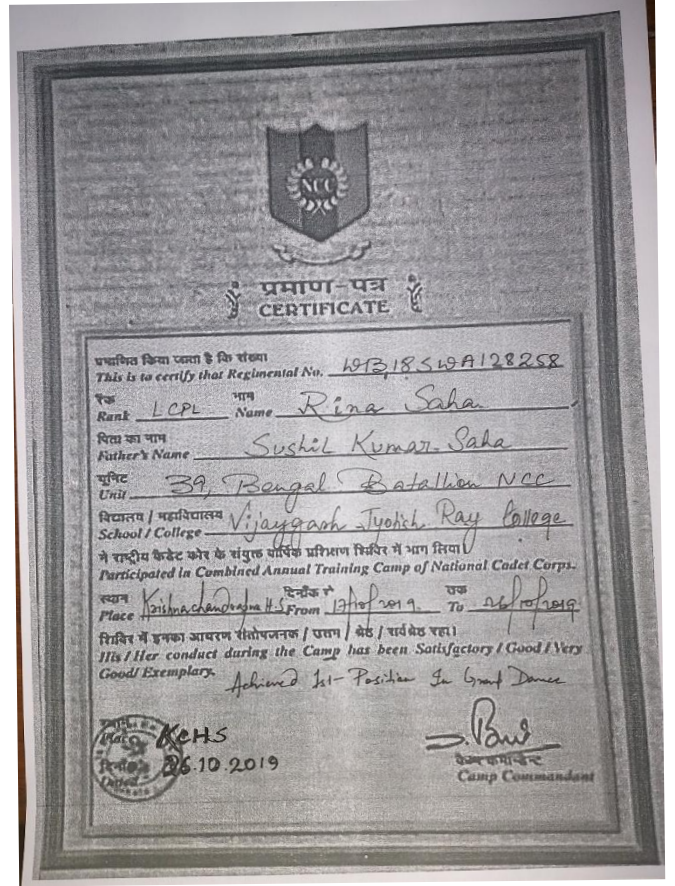 NCC
प्रमाण-पत्र
CERTIFICATE
प्रमाणित किया जाता है कि संख्या
This is to certify that Regimental No. WB18SWA128258
रैंक नाम
Rank LCPL Name Rina Saha
पिता का नाम
Father's Name Sushil Kumar Saha
यूनिट
Unit 39, Bengal Batallion NCC
विद्यालय / महाविद्यालय
School / College Vijaygarh Jyotish Ray College
ने राष्ट्रीय कैडेट कोर के संयुक्त वार्षिक प्रशिक्षण शिविर में भाग लिया।
Participated in Combined Annual Training Camp of National Cadet Corps.
स्थान दिनाँक से तक
Place H.S From 17/10/2019 To 26/10/2019
शिविर में इनका आचरण संतोषजनक / उत्तम / श्रेष्ठ / सर्वश्रेष्ठ रहा।
His / Her conduct during the Camp has been Satisfactory / Good / Very
Good / Exemplary.
Achieved 1st Position In Group Dance
KCHS
26.10.2019
Dated
कैम्प कमान्डेन्ट
Camp Commandant